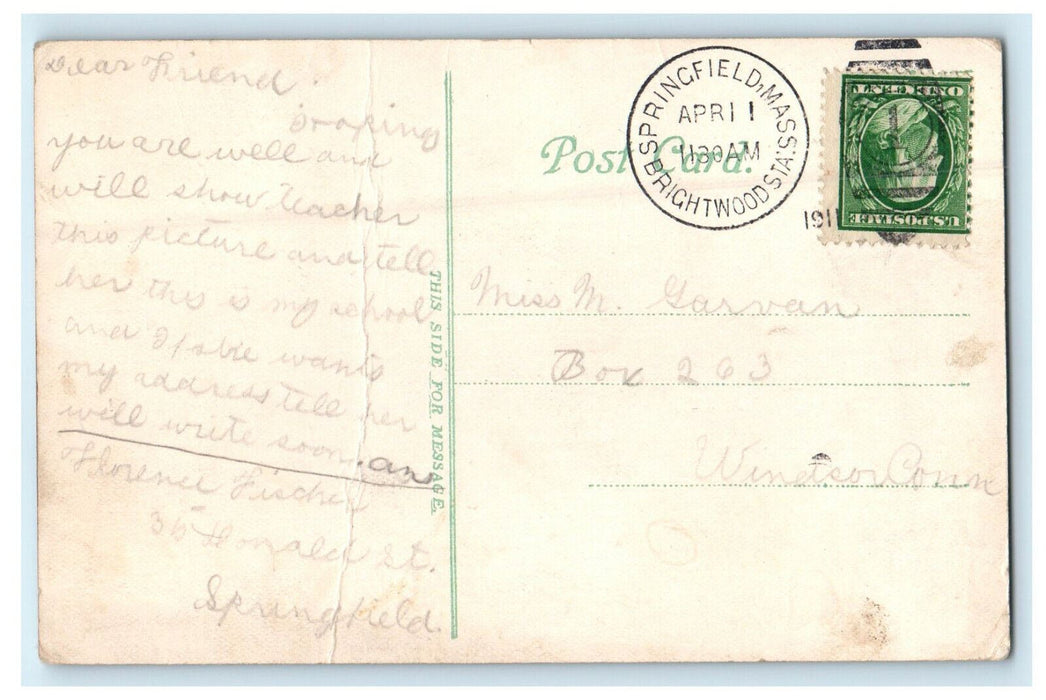 Dear Friend.
Hoping
you are well and
will show teacher
this picture and tell
her this is my school
and if she wants
my address tell her
will write soon. an
Florence Fischer
St.
Springfield.
THIS SIDE FOR MESSAGE.
Post Card.
SPRINGFIELD, MASS.
BRIGHTWOOD STA.
APR 11
1130AM
1911
U.S. POSTAGE
ONE CENT
Miss M. Garvan
Box 263
Windsor Conn